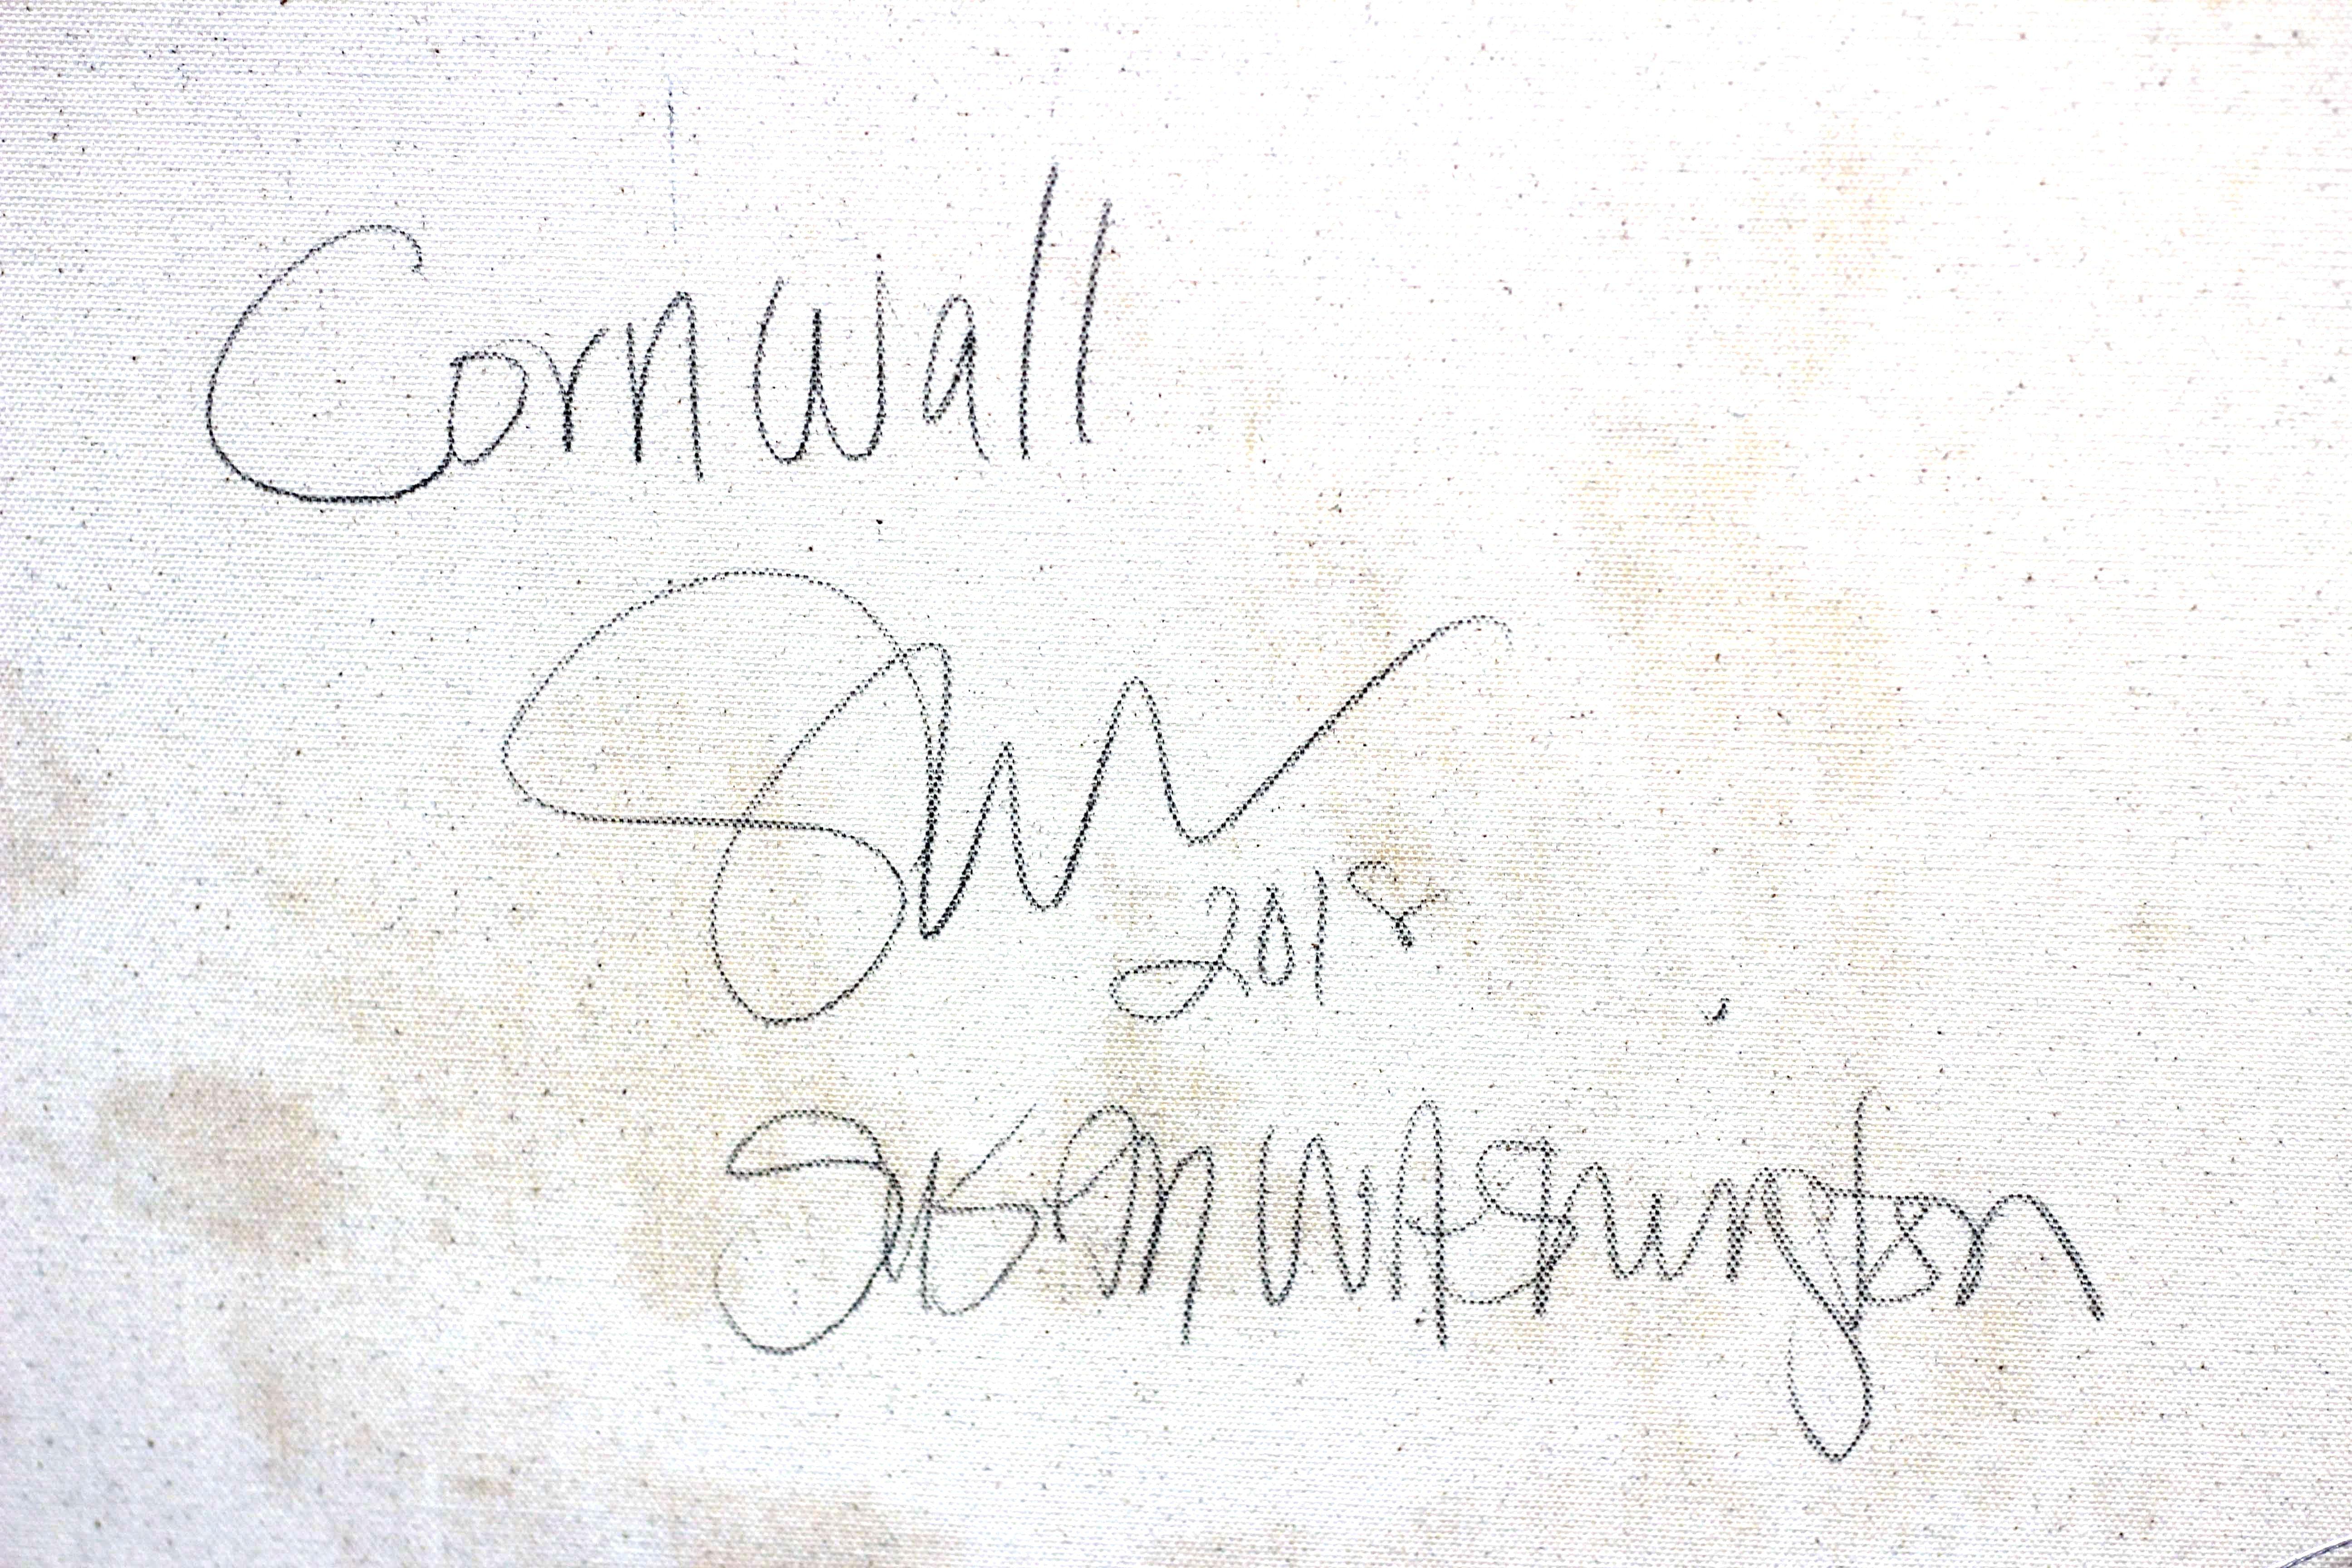 Cornwall
SW
2018
Susan Washington